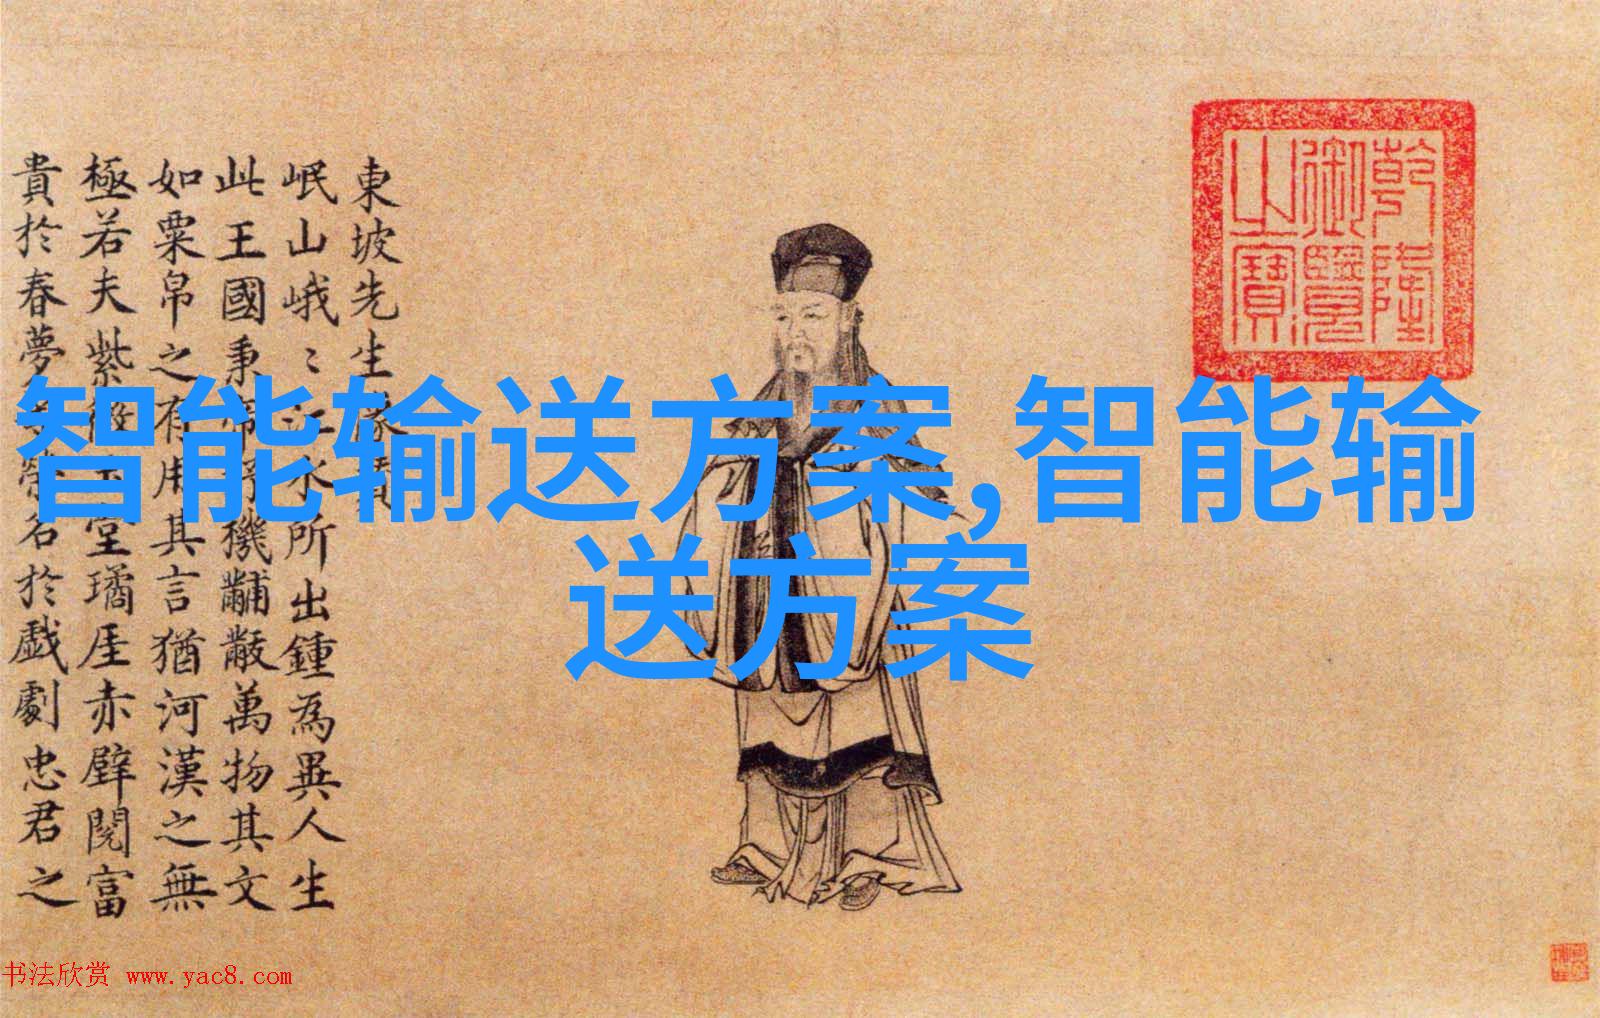 智能输送方案,智能输
送方案
乾隆
御覽
之寶
東坡先生像
岷山峨〻江水所出鍾為異人生
此王國秉帝杼機黼黻萬物其文
如粟帛之有用其言猶河漢之無
極若夫紫微玉堂璚厓赤壁閱富
貴於春夢等榮名於戲劇忠君之
书法欣赏 www.yac8.com